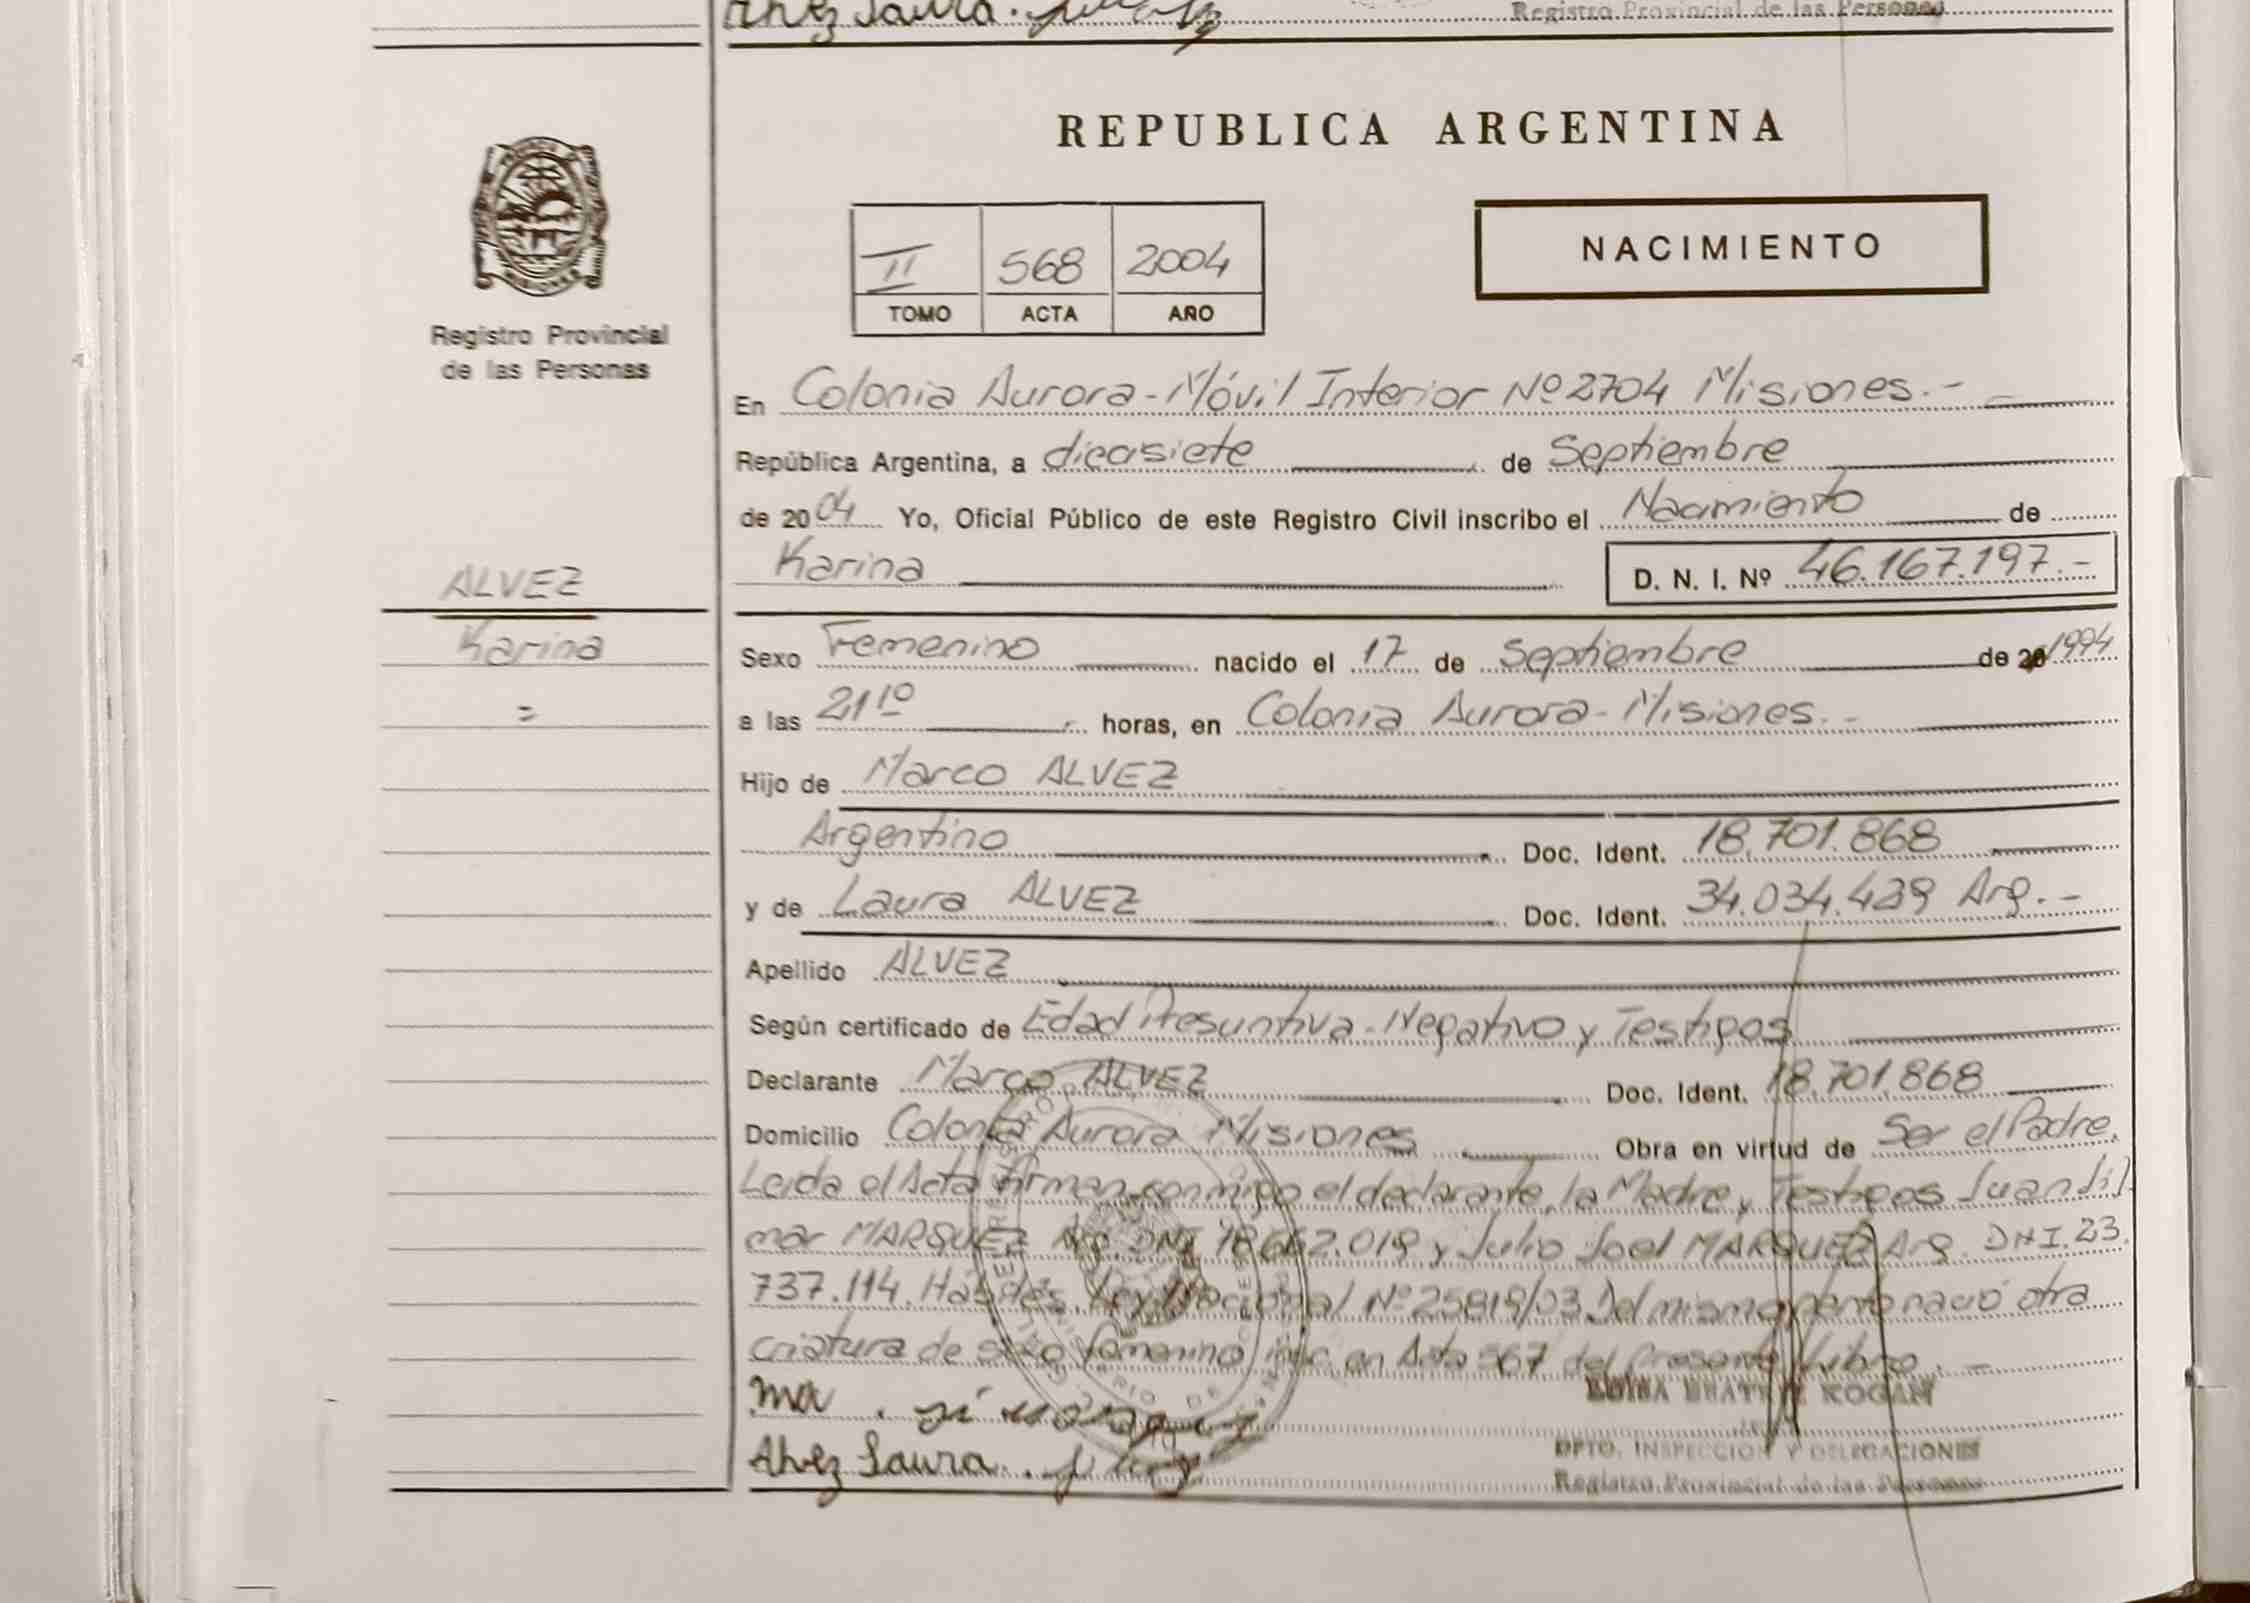 Alvez Laura.
Registro Provincial de las Personas
REPUBLICA ARGENTINA
II 568 2004
TOMO ACTA AÑO
NACIMIENTO
Registro Provincial
de las Personas
En Colonia Aurora - Móvil Interior Nº 2704 Misiones.-
República Argentina, a diecisiete de Septiembre
de 2004 Yo, Oficial Público de este Registro Civil inscribo el Nacimiento de
Karina D. N. I. Nº 46.167.197.-
ALVEZ
Karina
=
Sexo Femenino nacido el 17 de Septiembre de 20 1994
a las 21 10 horas, en Colonia Aurora - Misiones.-
Hijo de Marco ALVEZ
Argentino Doc. Ident. 18.701.868
y de Laura ALVEZ Doc. Ident. 34.034.439 Arg.-
Apellido ALVEZ
Según certificado de Edad Presuntiva - Negativo y Testigos
Declarante Marco ALVEZ Doc. Ident. 18.701.868
Domicilio Colonia Aurora Misiones Obra en virtud de Ser el Padre.
Leida el Acta firman conmigo el declarante, la Madre y Testigos Juan
mar MARQUEZ Arg. DNI 18.662.019 y Julio Joel MARQUEZ Arg. DNI. 23.
737.114. Hábiles. Ley Nacional Nº 25819/03 Del mismo parto nació otra
criatura de sexo femenino insc en Acta 567 del Presente Libro.-
ma
Alvez Laura.
KOGAN
DPTO. INSPECCION Y DELEGACIONES
Registro Provincial de las Personas